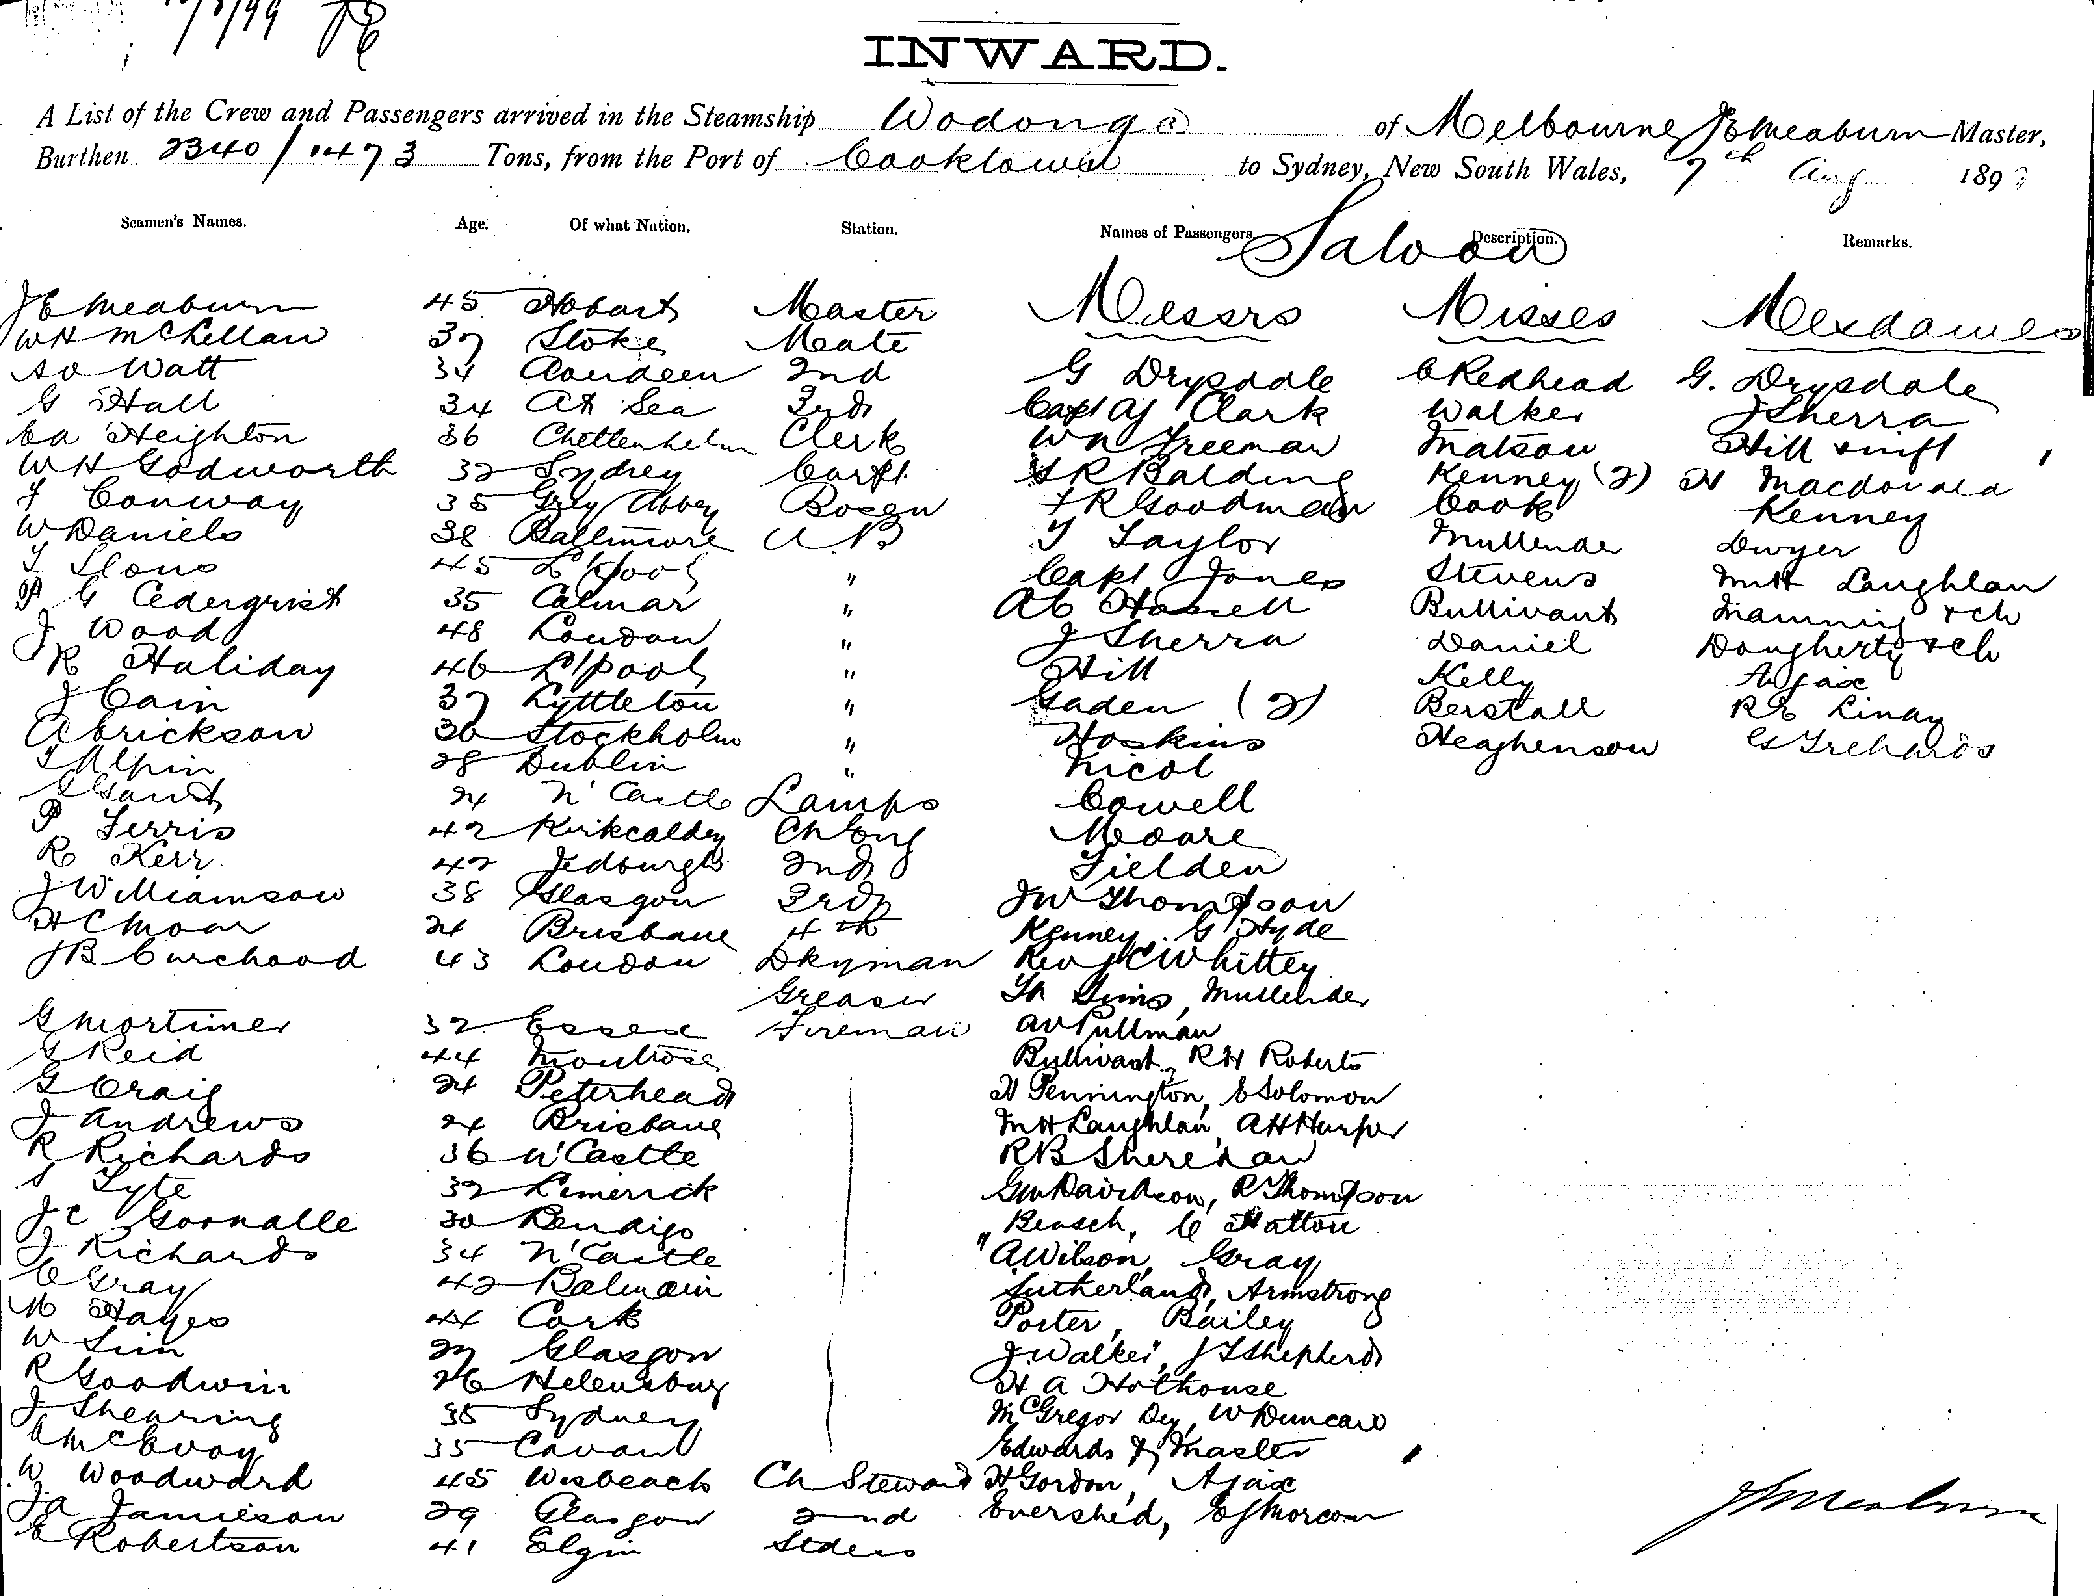 7/8/99 JE
INWARD.
A List of the Crew and Passengers arrived in the Steamship Wodonga of Melbourne JE Meaburn Master,
Burthen 2340/1473 Tons, from the Port of Cooktown to Sydney, New South Wales, 7th Aug 189
Seamen's Names. Age. Of what Nation. Station. Names of Passengers Saloon Description. Remarks.
JE Meaburn 45 Hobart Master Messrs Misses Mesdames
WH McLellan 37 Stoke Mate
AO Watt 34 Aberdeen 2nd G Drysdale C Redhead G. Drysdale
G Hall 34 At Sea 3rd Capt AJ Clark Walker J Sherra
CA Heighton 36 Cheltenhelm Clerk WN Freeman Matson Hill & inft
WH Godworth 32 Sydney Carpt SR Balding Kenney (2) H Macdonald
J Conway 35 Grey Abbey Bosen FR Goodman Cook Kenney
W Daniels 38 Baltimore AB T Taylor Mullender Dwyer
T Slous 45 L'pool " Capt Jones Stevens MH Laughlan
P G Cedergrist 35 Calmar " AC Hassell Bullivant Manning & ch
J Wood 48 London " J Sherra Daniel Dougherty & ch
R Haliday 46 L'pool " Hill Kelly Ajax
J Cain 37 Lyttleton " Gaden (2) Berstall RE Linay
A Erickson 30 Stockholm " Hoskins Heaghenson Trehards
J Alpin 28 Dublin " Nicol
G Gant 24 N'Castle Lamps Cowell
P Ferris 42 Kirkcaldy Ch Eng Moore
R Kerr 42 Jedburgh 2nd Fielden
J Williamson 38 Glasgow 3rd JW Thompson
HC Moar 24 Brisbane 4th Kenney, G Hyde
JB Curchood 43 London Dkyman Rev JC Whittey
Greaser Th Sims, Mullender
G Mortimer 32 Essex Fireman AV Pullman
G Reid 44 Montrose Bullivant, RH Roberts
G Craig 24 Peterhead H Pennington, E Solomon
J Andrews 24 Brisbane MH Laughlan, AH Harper
R Richards 36 N'Castle RB Sheridan
S Tyte 32 Limerick GM Davidson, R Thompson
JC Gornalle 30 Bendigo " Beasch, C Hatton
J Richards 34 N'Castle A. Wilson, Gray
C Gray 42 Balmain Sutherland, Armstrong
M Hayes 44 Cork Porter, Bailey
W Sim 27 Glasgow J. Walker, JT Shepherd
R Goodwin 26 Helensburg H A Hothouse
J Shearing 35 Sydney McGregor Dey, W Duncan
C McEvoy 35 Cavan Edwards & Master
W Woodward 45 Wisbeach Ch Steward H Gordon, Ajax
JA Jamieson 29 Glasgow 2nd Evershed, EJ Morcom
E Robertson 41 Elgin Stders
JE Meaburn